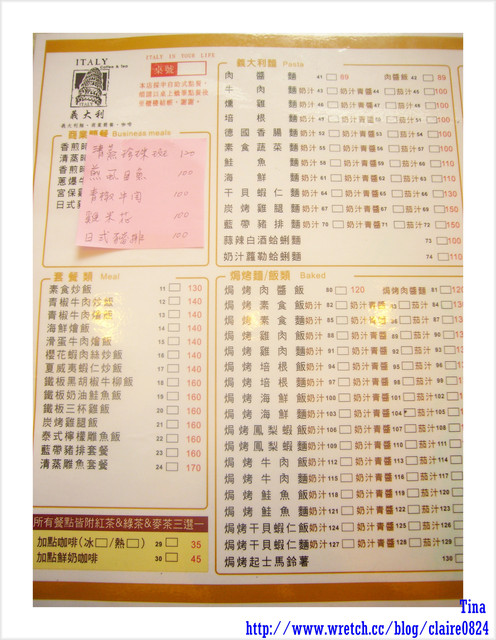 ITALY
Coffee & Tea
義大利
ITALY IS YOUR LIFE
桌號
商業簡餐 Business meals
清蒸珍珠斑 120
100
青椒牛肉 100
雞米花 100
日式豬排 100
套餐類 Meal
素食炒飯 11 130
青椒牛肉炒飯 12 140
青椒牛肉燴飯 13 140
海鮮燴飯 14 140
滑蛋牛肉燴飯 15 140
櫻花蝦肉絲炒飯 16 140
夏威夷蝦仁炒飯 17 140
鐵板黑胡椒牛柳飯 18 160
鐵板奶油鮭魚飯 19 160
鐵板三杯雞飯 20 160
炭烤雞腿飯 21 160
泰式檸檬雕魚飯 22 160
藍帶豬排套餐 23 160
清蒸雕魚套餐 24 170
所有餐點皆附紅茶&綠茶&麥茶三選一
加點咖啡(冰□/熱□) 29 35
加點鮮奶咖啡 30 45
義大利麵 Pasta
肉醬麵 41 89 肉醬飯 42 89
牛肉麵 奶汁 43 奶汁青醬 44 茄汁 45 100
燻雞麵 奶汁 奶汁青醬 茄汁 100
培根麵 奶汁 奶汁青醬 茄汁 100
德國香腸麵 奶汁 奶汁青醬 茄汁 54 100
素食蔬菜麵 奶汁 55 奶汁青醬 56 茄汁 57 100
鮭魚麵 奶汁 58 奶汁青醬 59 茄汁 60 110
海鮮麵 奶汁 61 奶汁青醬 62 茄汁 63 110
干貝蝦仁麵 奶汁 64 奶汁青醬 65 茄汁 66 130
炭烤雞腿麵 奶汁 67 奶汁青醬 68 茄汁 69 150
藍帶豬排麵 奶汁 70 奶汁青醬 71 茄汁 72 150
蒜辣白酒蛤蜊麵 73 100
奶汁蘿勒蛤蜊麵 74 110
焗烤麵/飯類 Baked
焗烤肉醬飯 80 120 焗烤肉醬麵 81 120
焗烤素食飯 奶汁 82 奶汁青醬 83 茄汁 84
焗烤素食麵 奶汁 奶汁青醬 茄汁
焗烤雞肉飯 奶汁 奶汁青醬 茄汁 90
焗烤雞肉麵 奶汁 91 奶汁青醬 92 茄汁 93
焗烤培根飯 奶汁 94 奶汁青醬 95 茄汁 96
焗烤培根麵 奶汁 97 奶汁青醬 98 茄汁 99
焗烤海鮮飯 奶汁 100 奶汁青醬 101 茄汁 102
焗烤海鮮麵 奶汁 103 奶汁青醬 104 茄汁 105
焗烤鳳梨蝦飯 奶汁 106 奶汁青醬 107 茄汁 108
焗烤鳳梨蝦麵 奶汁 109 奶汁青醬 110 茄汁 111
焗烤牛肉飯 奶汁 112 奶汁青醬 113 茄汁 114
焗烤牛肉麵 奶汁 115 奶汁青醬 116 茄汁 117
焗烤鮭魚飯 奶汁 118 奶汁青醬 119 茄汁 120
焗烤鮭魚麵 奶汁 121 奶汁青醬 122 茄汁 123
焗烤干貝蝦仁飯 奶汁 124 奶汁青醬 125 茄汁 126
焗烤干貝蝦仁麵 奶汁 127 奶汁青醬 128 茄汁 129
焗烤起士馬鈴薯 130
Tina
http://www.wretch.cc/blog/claire0824